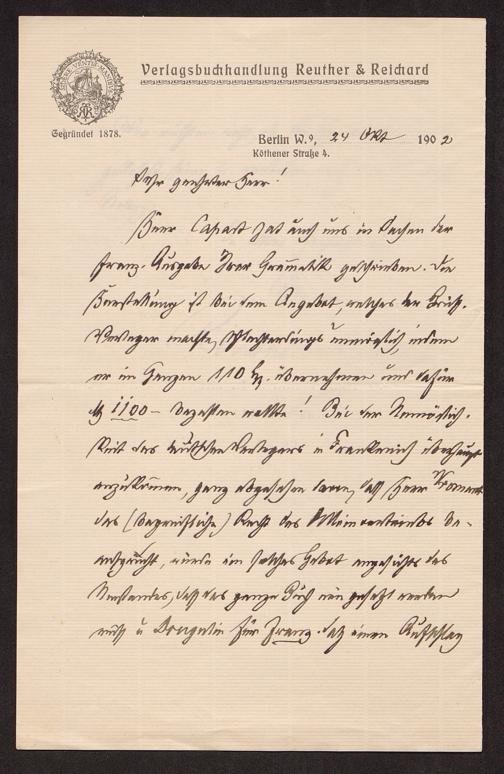 Verlagsbuchhandlung Reuther & Reichard
Gegründet 1878.
Berlin W. 9, 24 Okt 1902
Köthener Straße 4.
Sehr geehrter Herr!
Herr Capart hat auch uns in Sachen der
franz. Ausgabe Ihrer Grammatik geschrieben. Die
Herstellung ist bei dem Angebot, welches der Brüss.
Verleger machte, schlechterdings unmöglich, indem
er im Ganzen 110 Ex. übernehmen und dafür
M 1100 – bezahlen wollte! Bei der Unmöglich-
keit des deutschen Verlegers in Frankreich überhaupt
anzukommen, ganz abgesehen davon, daß Herr
das (begreifliche) Recht des Alleinvertriebs be-
ansprucht, würde ein solches Gebot angesichts des
Umstandes, daß das ganze Buch neu gesetzt werden
muß u Drugulin für franz. Satz einen Aufschlag